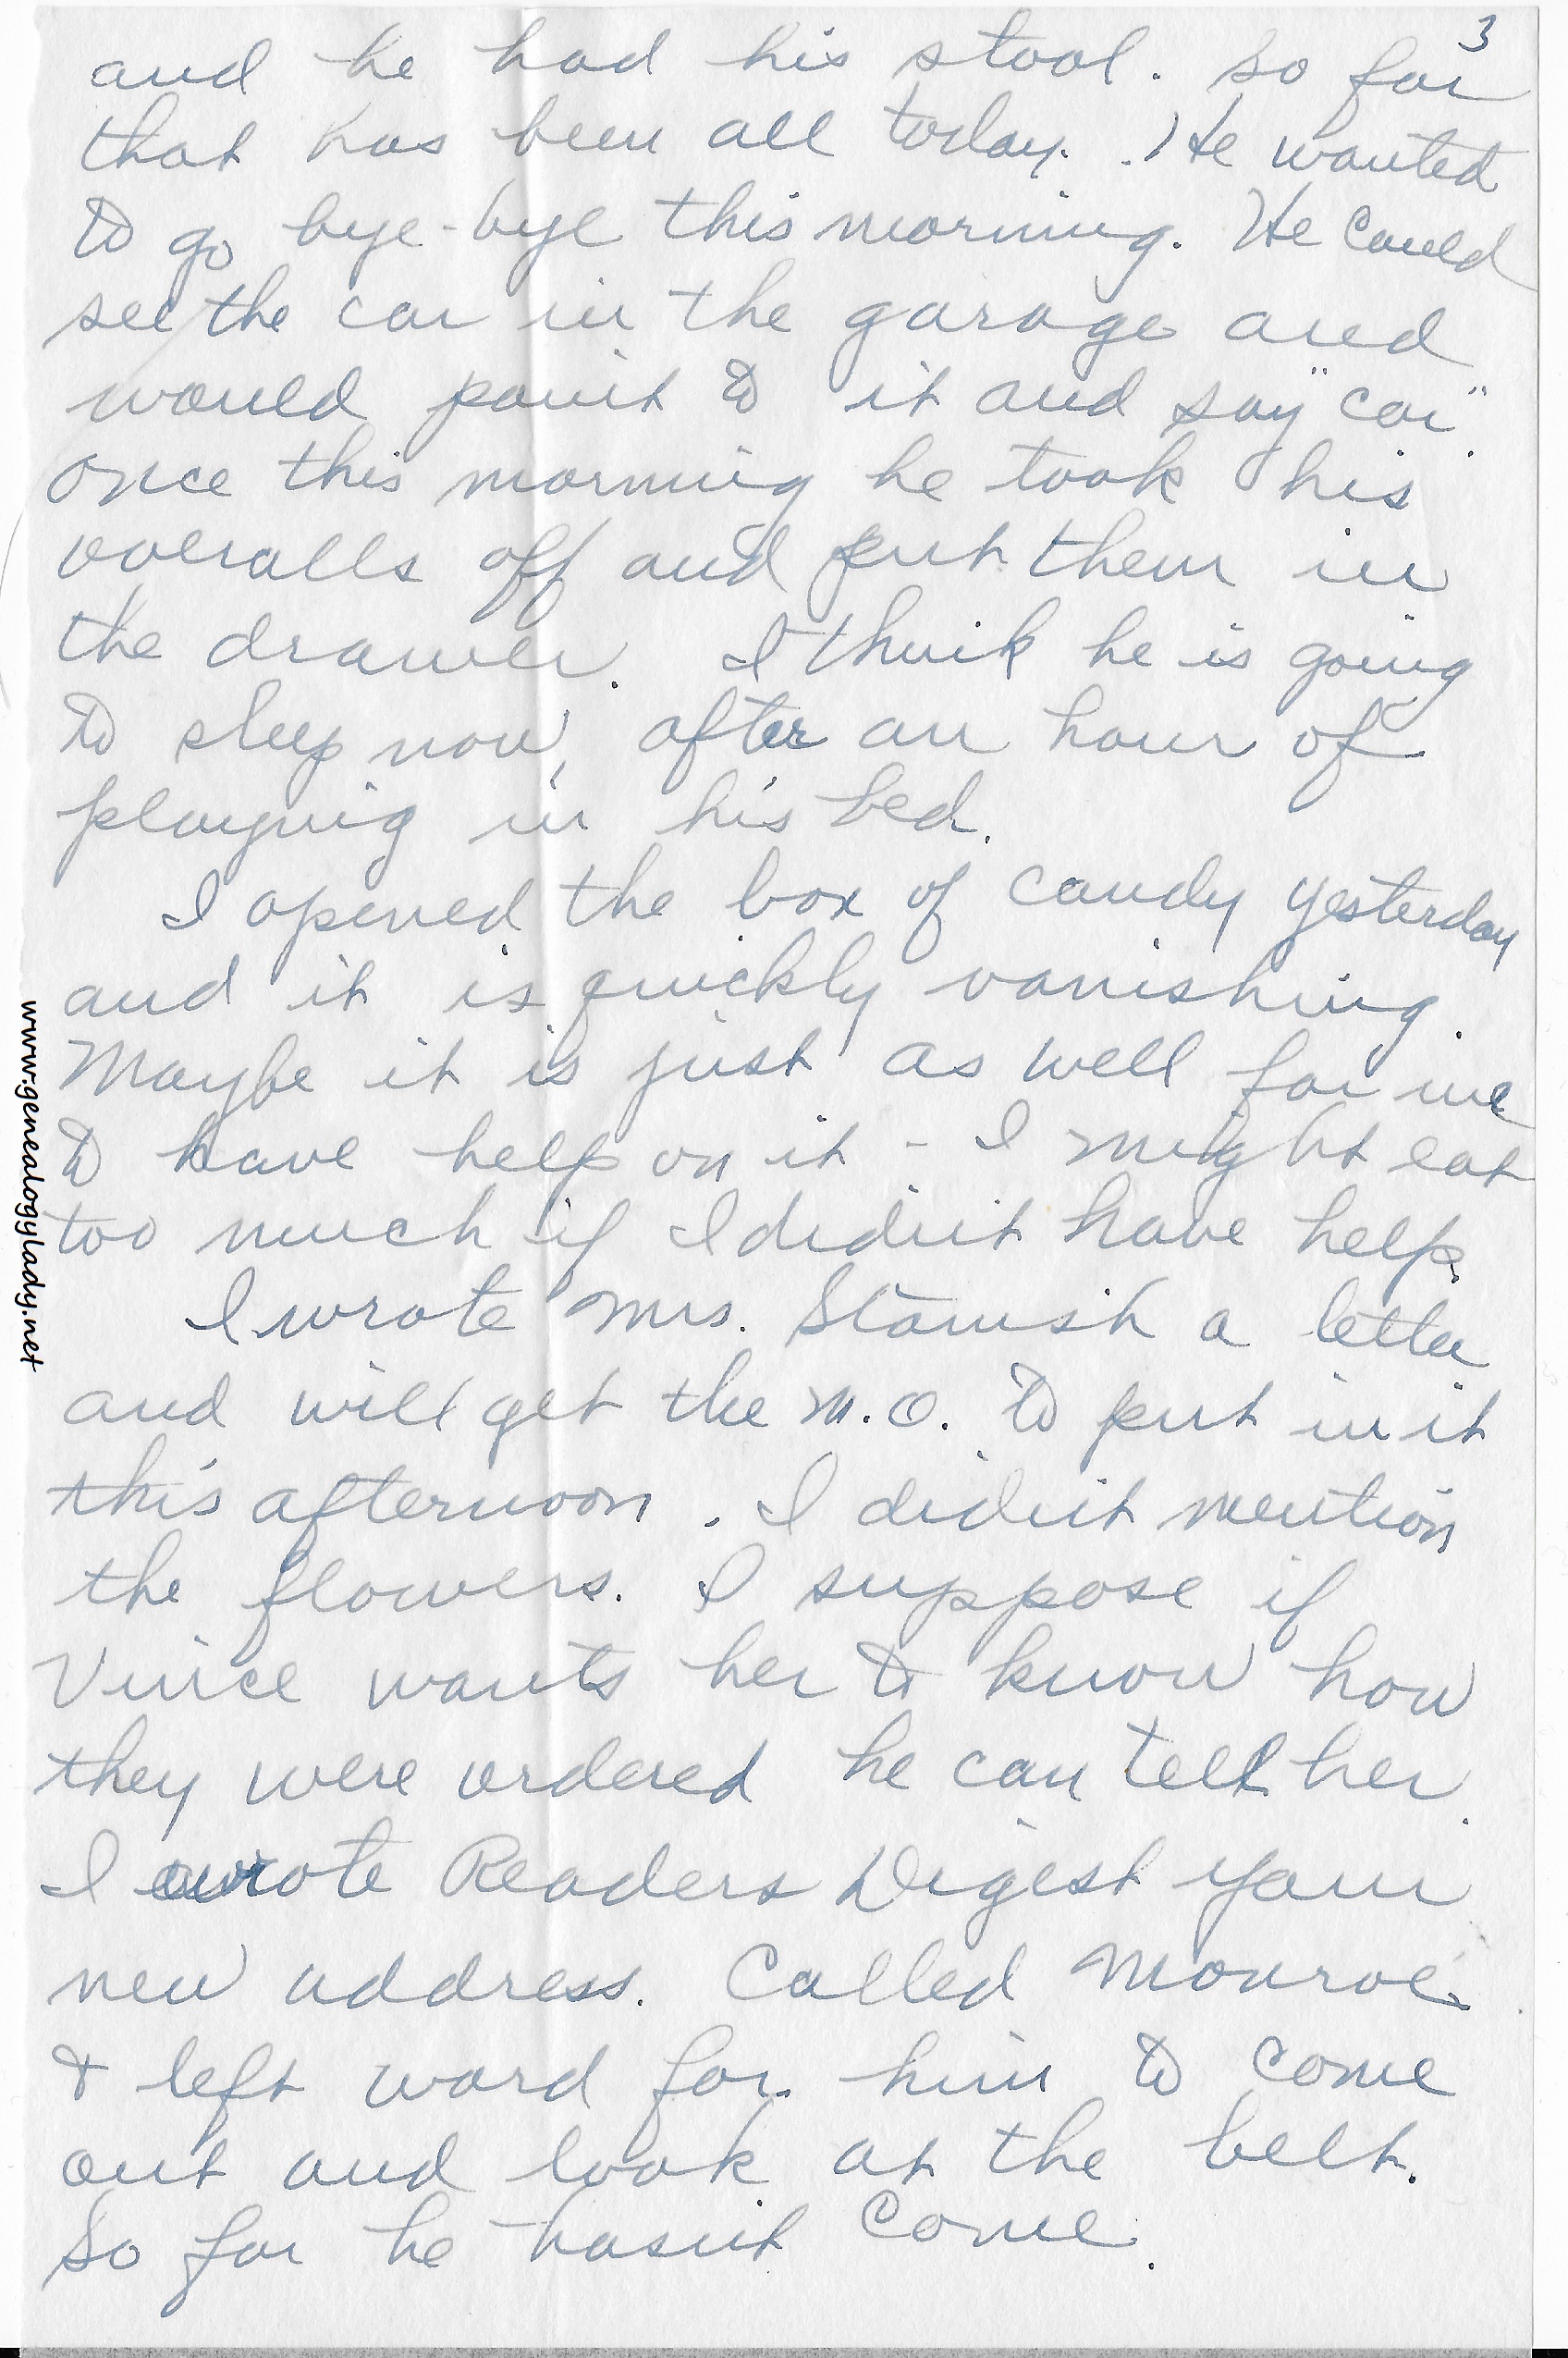 3
and he had his stool. So far
that has been all today. He wanted
to go bye-bye this morning. He could
see the car in the garage and
would point to it and say "car".
Once this morning he took his
overalls off and put them in
the drawer. I think he is going
to sleep now, after an hour of
playing in his bed.
I opened the box of candy yesterday
and it is quickly vanishing.
Maybe it is just as well for me
to have help on it - I might eat
too much if I didn't have help.
I wrote Mrs. Stanish a letter
and will get the M.O. to put in it
this afternoon. I didn't mention
the flowers. I suppose if
Vince wants her to know how
they were ordered he can tell her.
I wrote Readers Digest your
new address. Called Monroe
& left word for him to come
out and look at the belt.
So far he hasn't come.
www.genealogylady.net